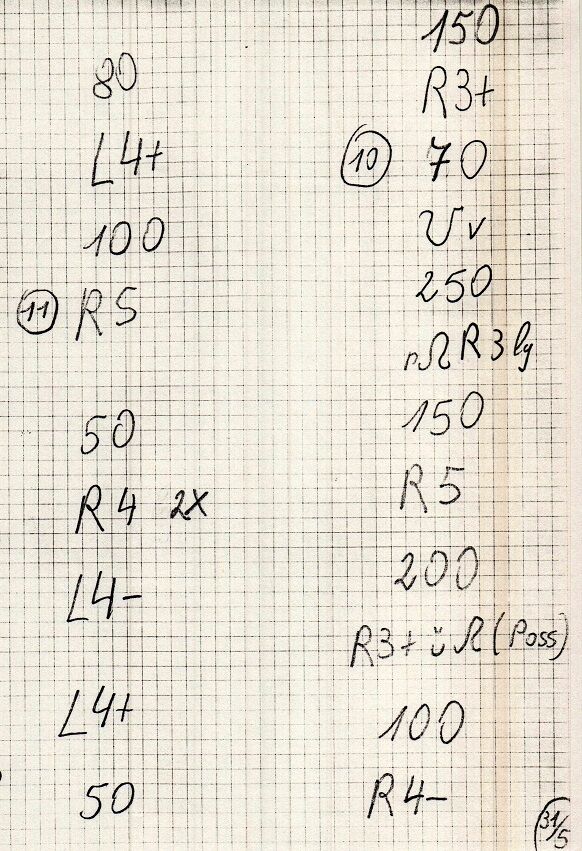 80
L4+
100
11 R5
50
R4 2x
L4-
L4+
50
150
R3+
10 70
250
R3 lg
150
R5
200
R3+ ü (Poss)
100
R4-
31/5